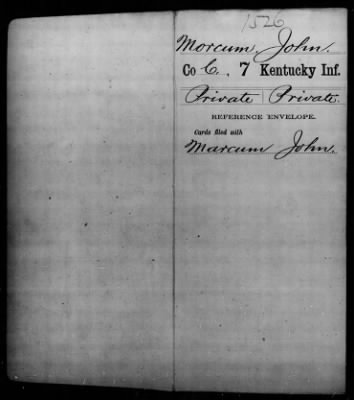 1526
Morcum, John.
Co C., 7 Kentucky Inf.
Private | Private.
REFERENCE ENVELOPE.
Cards filed with
Marcum John.